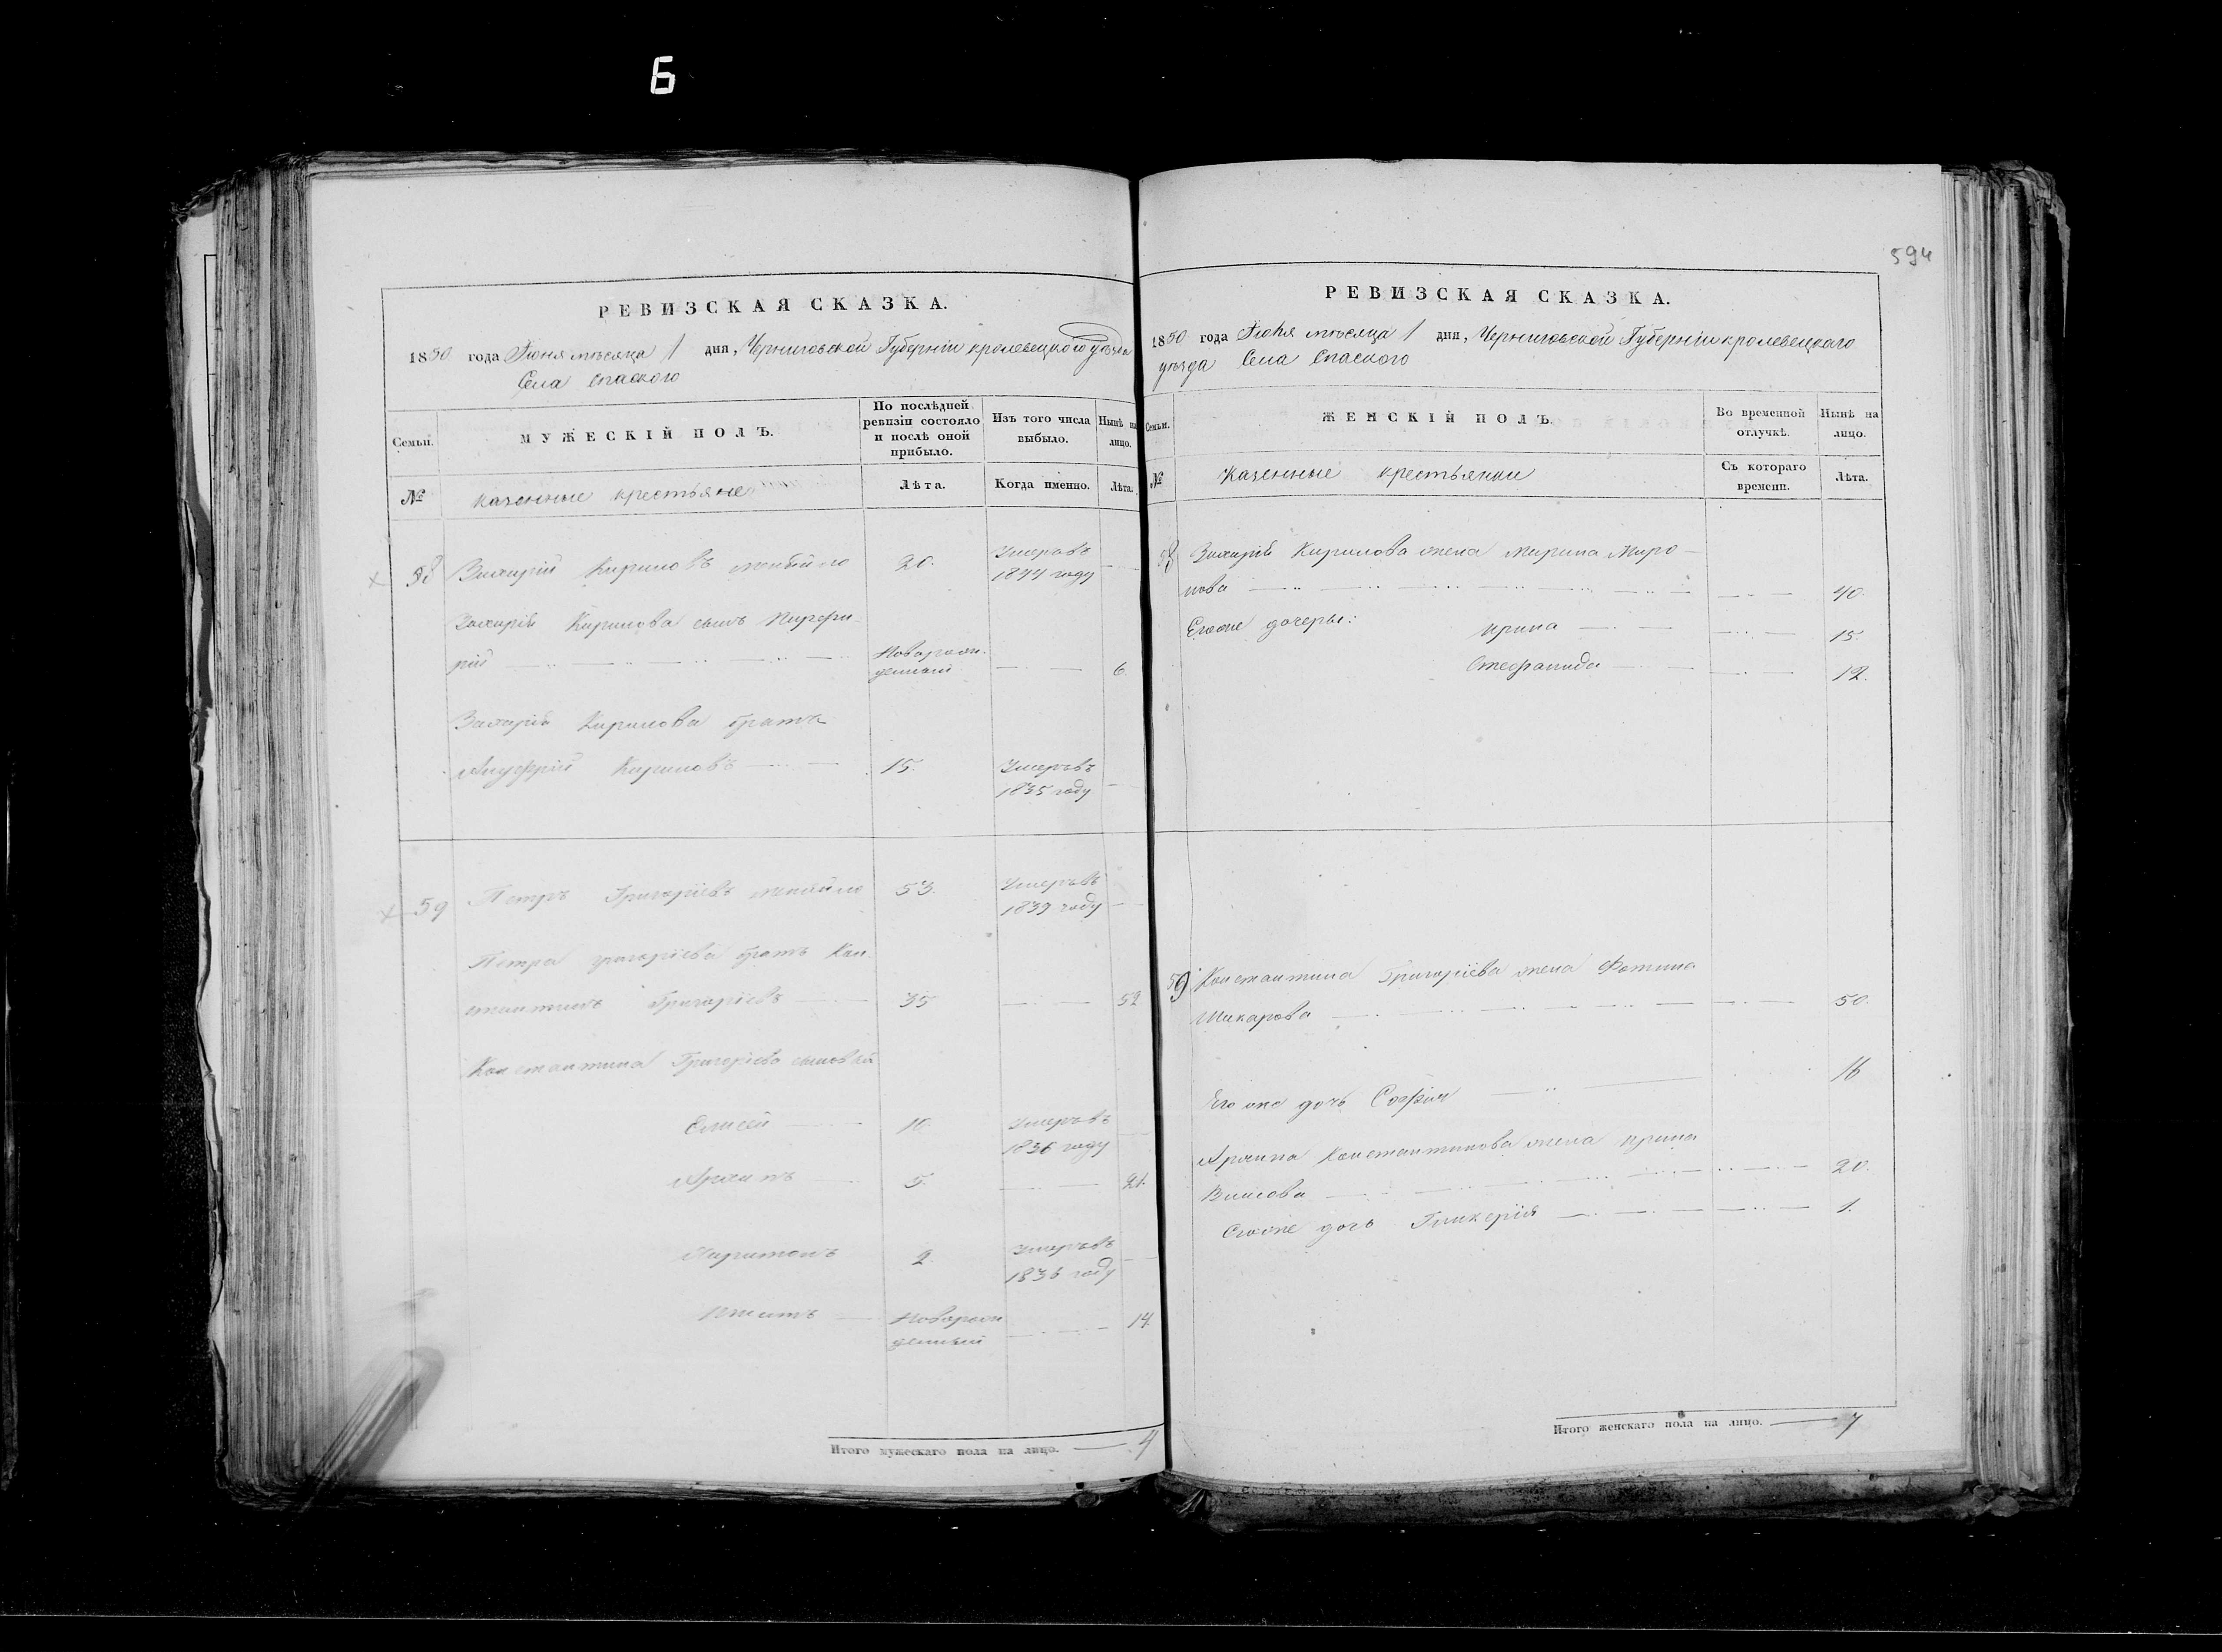 Б
594
РЕВИЗСКАЯ СКАЗКА.
1850 года Июня мѣсяца 1 дня, Черниговской Губерніи кролевецкого уѣзда
Села Спаского
Семьи.
МУЖЕСКІЙ ПОЛЪ.
По послѣдней
ревизіи состояло
и послѣ оной
прибыло.
Изъ того числа
выбыло.
Нынѣ на
лицо.
№
казенные крестьяне
Лѣта.
Когда именно.
Лѣта.
58 Захарій Кириловъ 20. Умеръвъ
1844 году
Захарія Кирилова сынъ Пигфи-
рій Новорож-
денный 6
Захарія Кирилова братъ
Ануфрій Кириловъ 15. Умеръвъ
1835 году
59 Петръ Григоріевъ 53. Умеръвъ
1839 году
Петра григоріева братъ Кон-
стантинъ Григоріевъ 35 52
Константина Григоріева сыновья
Елисей 10 Умеръвъ
1836 году
Архипъ 5. 21.
Харитонъ 2. Умеръвъ
1836 году
Новорож
денный 14.
Итого мужескаго пола на лицо. 4
РЕВИЗСКАЯ СКАЗКА.
1850 года Июня мѣсяца 1 дня, Черниговской Губерніи кролевецкаго
уѣзда Села Спаского
Семьи.
ЖЕНСКІЙ ПОЛЪ.
Во временной
отлучкѣ.
Нынѣ на
лицо.
№
Казенные крестьянки
Съ котораго
времени.
Лѣта.
58 Захарія Кирилова жена Марина Миро-
нова 40.
Егоже дочеры: Ирина 15.
Стефанида 12.
59 Константина Григоріева жена Фотина
Макарова 50.
Его же дочь Софія 16
Архипа Константинова жена Ирина
20.
Егоже дочь Гликерія 1.
Итого женскаго пола на лицо. 7